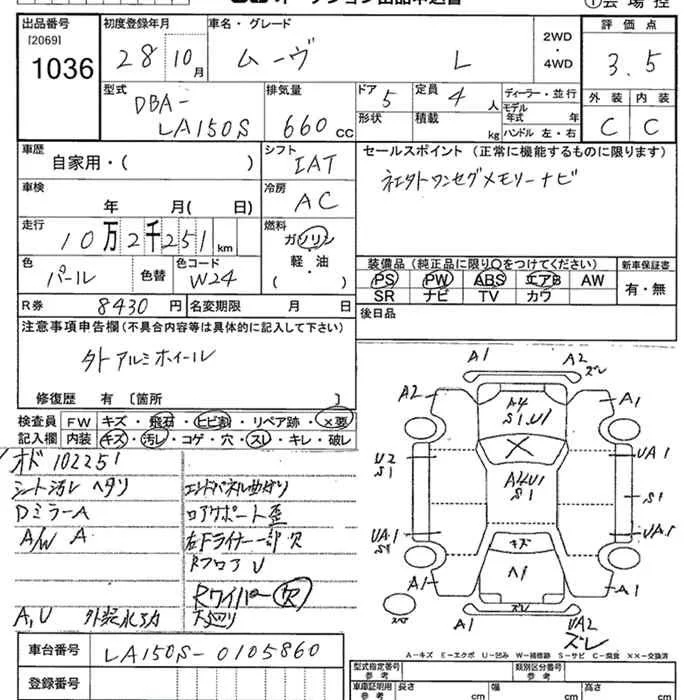 オークション出品申込書
①会場控
出品番号 [2069] 1036
初度登録年月 28 10月
車名・グレード ムーヴ L
2WD・4WD
評価点 3.5
型式 DBA-LA150S
排気量 660cc
ドア 5
形状
定員 4人
積載 kg
ディーラー・並行
モデル年式 年
ハンドル 左・右
外装 C
内装 C
車歴 自家用・( )
シフト IAT
セールスポイント (正常に機能するものに限ります)
ワンセグメモリーナビ
車検 年 月( 日)
冷房 AC
走行 10万2千251km
燃料 ガソリン 軽・油 ( )
色 パール 色替
色コード W24
装備品 (純正品に限り〇をつけてください)
PS PW ABS エアB AW
SR ナビ TV カワ
新車保証書 有・無
R券 8430円
名変期限 月 日
後日品
注意事項申告欄 (不具合内容等は具体的に記入して下さい)
外アルミホイール
修復歴 有 〔箇所 〕
検査員記入欄
FW キズ・飛石・ヒビ割・リペア跡・×要
内装 キズ・汚レ・コゲ・穴・スレ・キレ・破レ
オド 102251
シート汚レ ヘタリ
Dミラー A
A/W A
A,U
エンドパネル曲ガリ
コアサポート歪
左Fライナー一部欠
RフロアU
Rワイパー欠
下廻リ
A1 A2 ズレ
A2 A4 S1,U1 A1
U2 S1 A4U1 S1 UA1
S1
UA1 S1 キズ UA1
A1 A1
ズレ
A1 UA2 ズレ
A-キズ E-エクボ U-凹み W-補修跡 S-サビ C-腐食 XX-交換済
車台番号 LA150S-0105860
登録番号
型式指定番号 参考
類別区分番号 参考
車庫証明用 参考 長さ cm 幅 cm 高さ cm